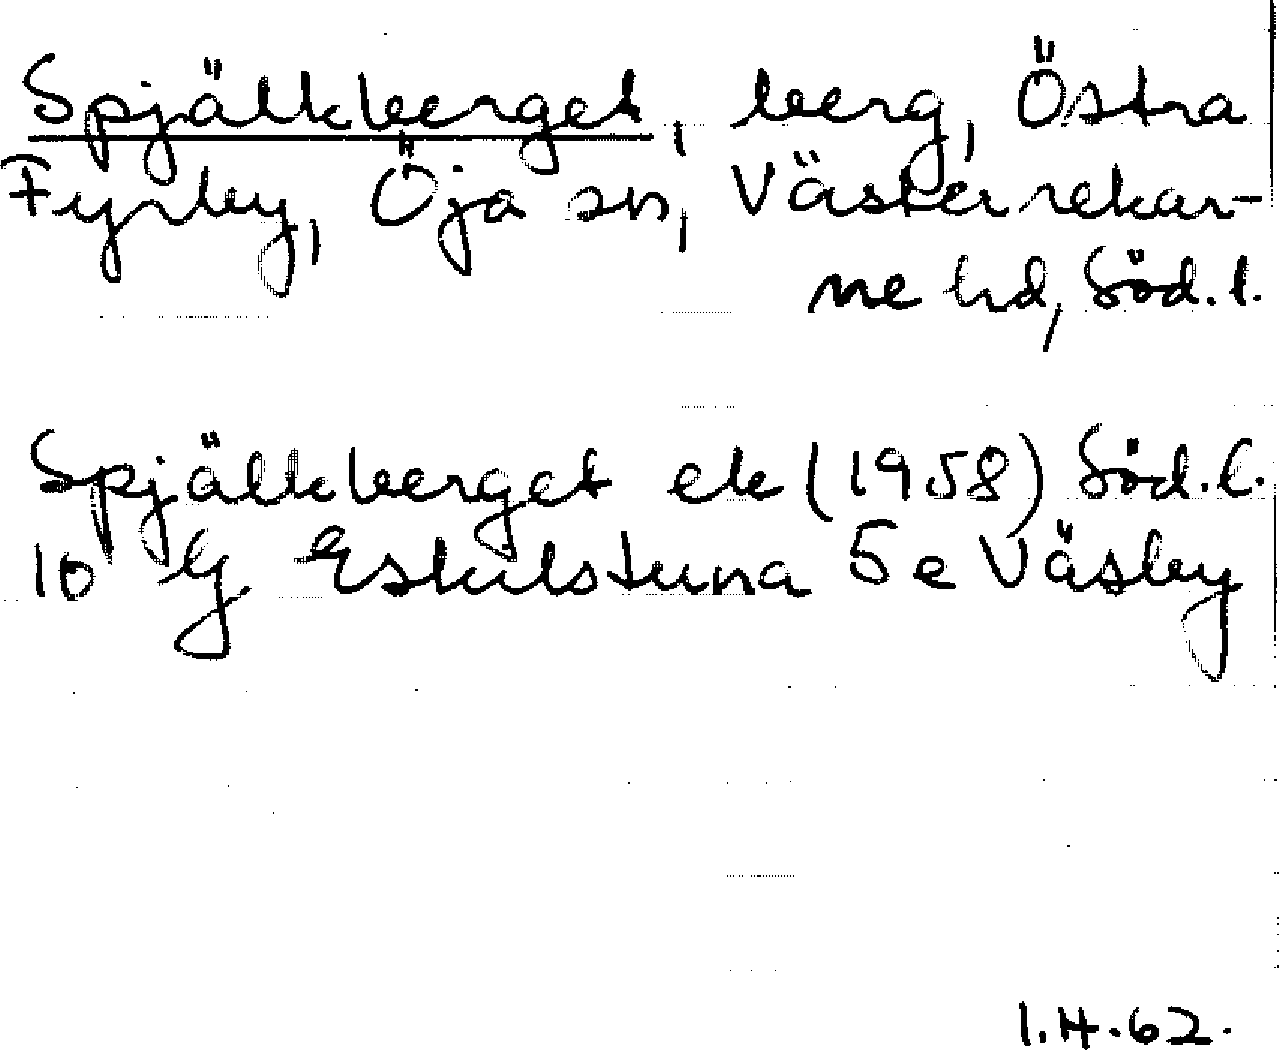 Spjälkberget, berg, Östra
Fyrby, Öja sn, Västerrekar-
ne hd, Söd. l.
Spjälkberget ek (1958) Söd. l.
10 G Eskilstuna 5 e Väsby
I.H.62.